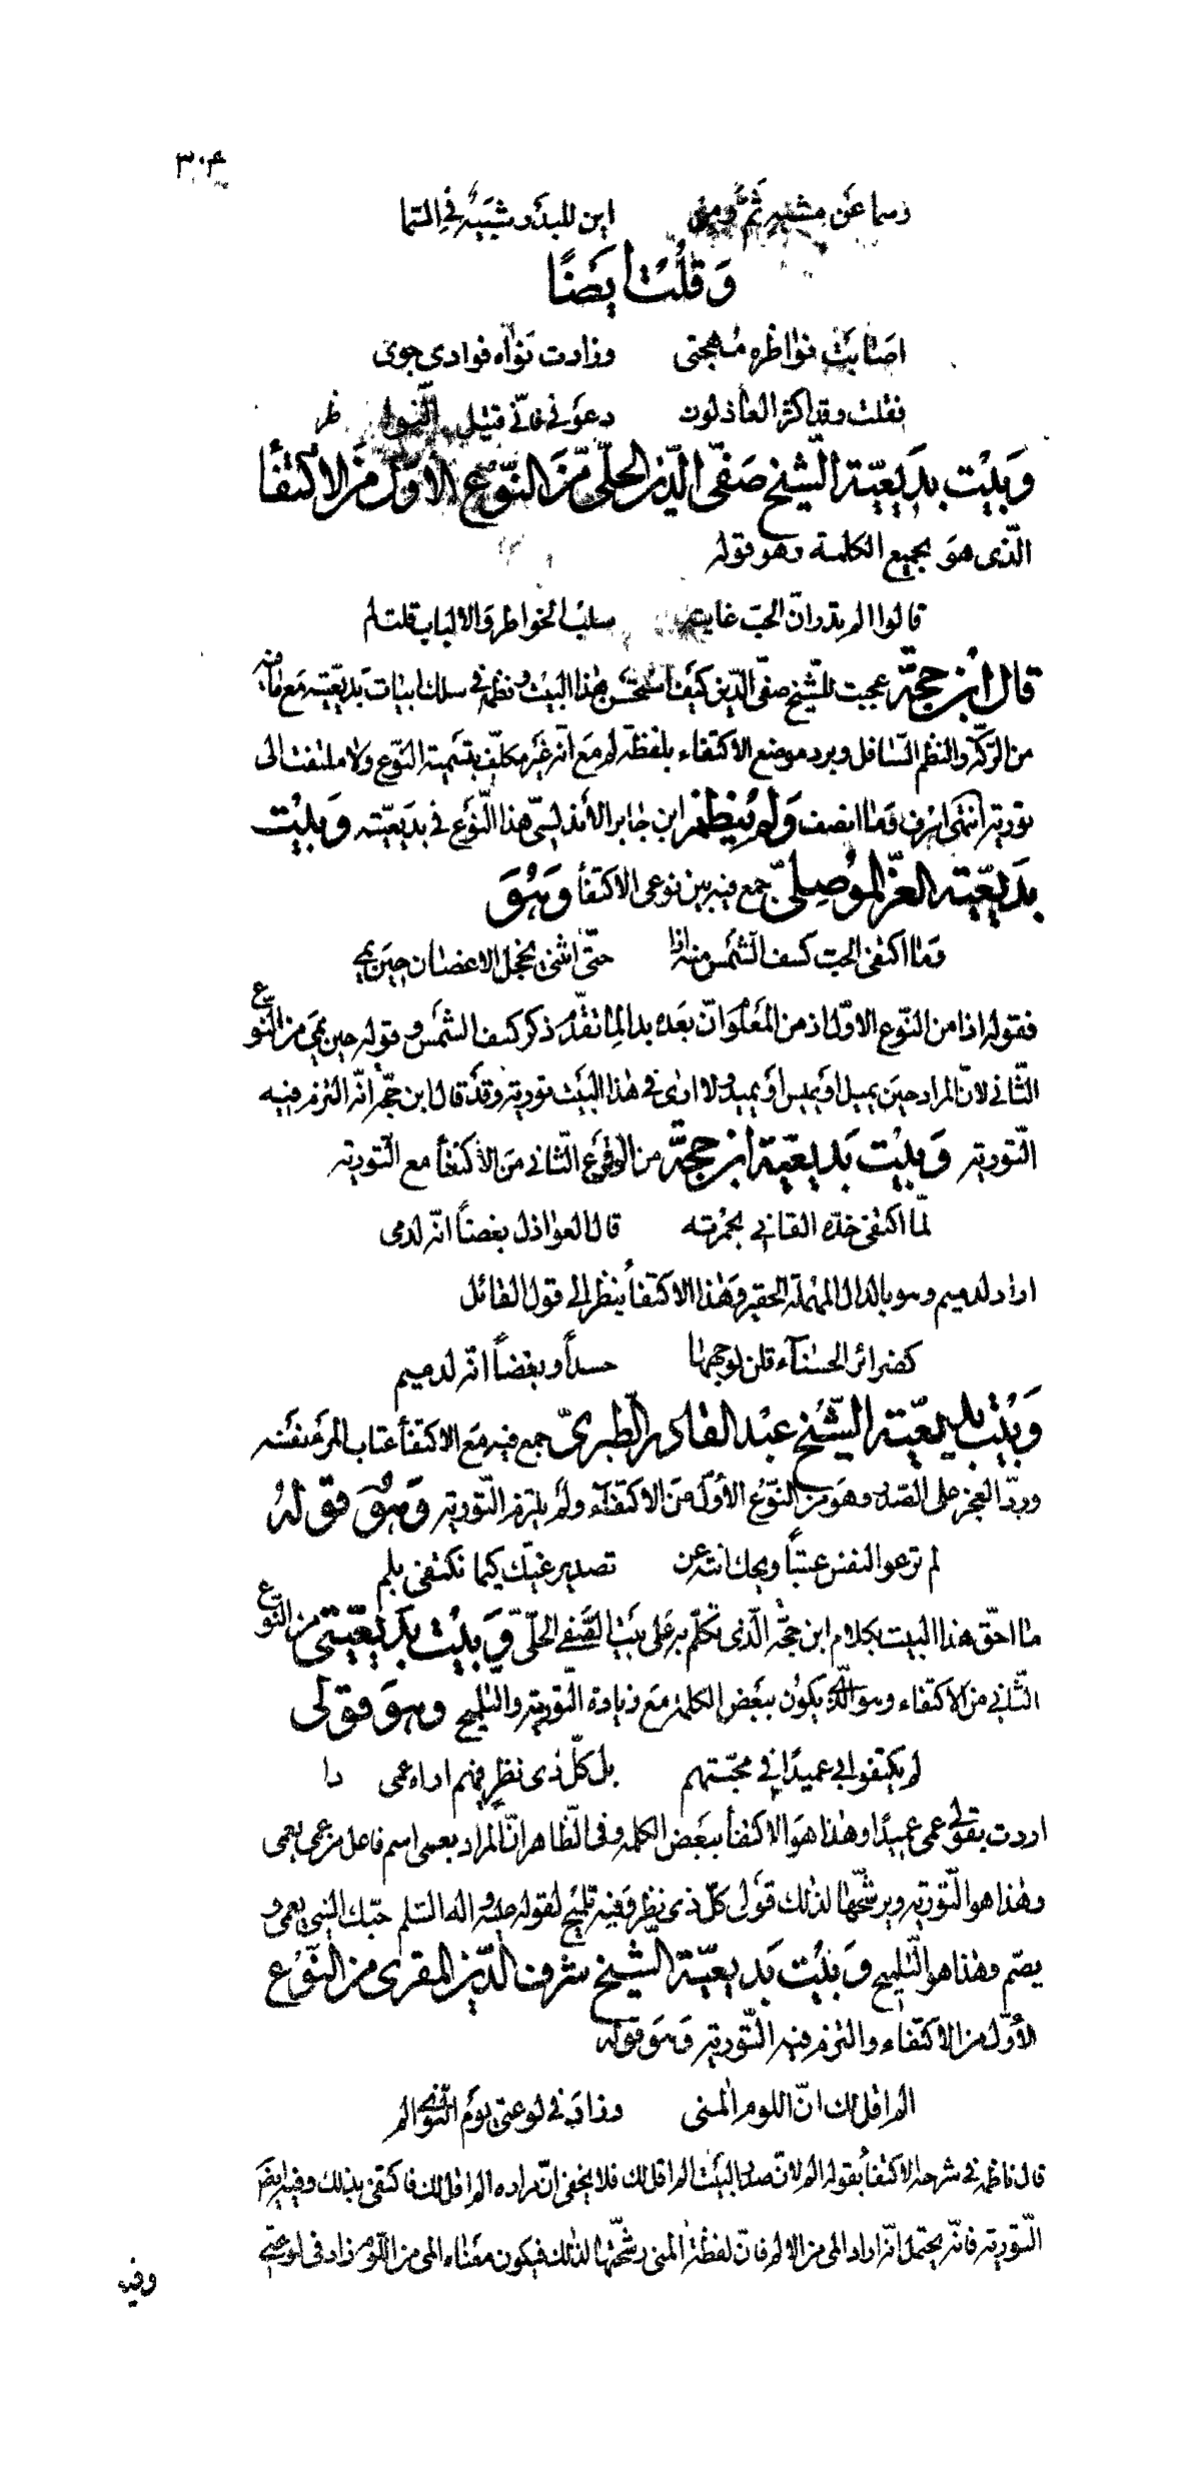 ٣٠٤
وسما عن مشبه ثم ومن اين للبدر شبيه في السما
وقلت ايضا
اصابت نواظره مهجتي وزادت نواه فوادي جوى
فقلت وقد اكثر العاذلون دعوني فاني قتيل النوا ظر
وبيت بديعية الشيخ صفي الدين الحلي من النوع الاول من الاكتفأ
الذي هو بجميع الكلمة وهو قوله
قالوا الم تدر ان الحب غايته سلب الخواطر والالباب قلت لم
قال ابن حجة عجبت للشيخ صفي الدين كيف استحسن هذا البيت ونظمه في سلك ابيات بديعيته مع ما فيه
من الركة والنظم السافل وبرد موضع الاكتفاء بلفظة لم مع انه غير مكلف بتسمية النوع ولا ملتفت الى
تورية انتهى وما انصف ولم ينظم ابن جابر الاندلسي هذا النوع في بديعيته وبيت
بديعية العز الموصلي جمع فيه بين نوعي الاكتفأ وهو
وما اكتفى الحب كسف الشمس منه اذا حتى انثنى يخجل الاغصان حين يمي
فقوله اذا من النوع الاول اذ من المعلوم ان بعده بدا لما تقدم ذكر كسف الشمس وقوله حين يمي من النوع
الثاني لان المراد حين يميل او يميس او يميد ولا ارى في هذا البيت تورية وقد قال ابن حجة انه التزم فيه
التورية وبيت بديعية ابن حجة من النوع الثاني من الاكتفأ مع التورية
لما اكتفى خده القاني بحمرته قال العواذل بغضا انه لدمي
اراد لدميم وهو بالدال المهملة الحقير وهذا الاكتفأ ينظر الى قول القائل
كضرائر الحسنآء قلن لوجهها حسدا وبغضا انه لدميم
وبيت بديعية الشيخ عبد القادر الطبري جمع فيه مع الاكتفأ عتاب المرء نفسه
ورد العجز على الصدر وهو من النوع الاول من الاكتفآء ولم يلتزم التورية وهو قوله
لم ترعو النفس عتبا ويحك انته عن تصدير غيك كيما تكتفي بلم
ما احق هذا البيت بكلام ابن حجة الذي تكلم به على بيت الصفي الحلي وبيت بديعيتي من النوع
الثاني من الاكتفاء وهو الذي يكون ببعض الكلمة مع زيادة التورية والتلميح وهو قولي
لم يكتفوا بي عميدا في محبتهم بل كل ذي نظر فيهم اراه عمي دا
اردت بقولي عمي عميدا وهذا هو الاكتفأ ببعض الكلمة وفي الظاهر ان المراد بعمي اسم فاعل من عمي يعمى
وهذا هو التورية ويرشحها لذلك قولي كل ذي نظر وفيه تلميح لقوله عليه واله السلم حبك الشيء يعمي و
يصم وهذا هو التلميح وبيت بديعية الشيخ شرف الدين المقري من النوع
الأول من الاكتفاء والتزم فيه التورية وهو قوله
الم اقل لك ان اللوم المني وزاد في لوعتي يوم النوى الم
قال ناظمه في شرحه الاكتفأ بقوله الم لان صدر البيت الم اقل لك فلا يخفى ان مراده الم اقل لك فاكتفى بذلك وفيه ايضا
التورية فانه يحتمل انه اراد الم من الالم فان لفظة المني رشحتها لذلك فيكون معناه الم من اللوم زاد في لوعتي
وفيه